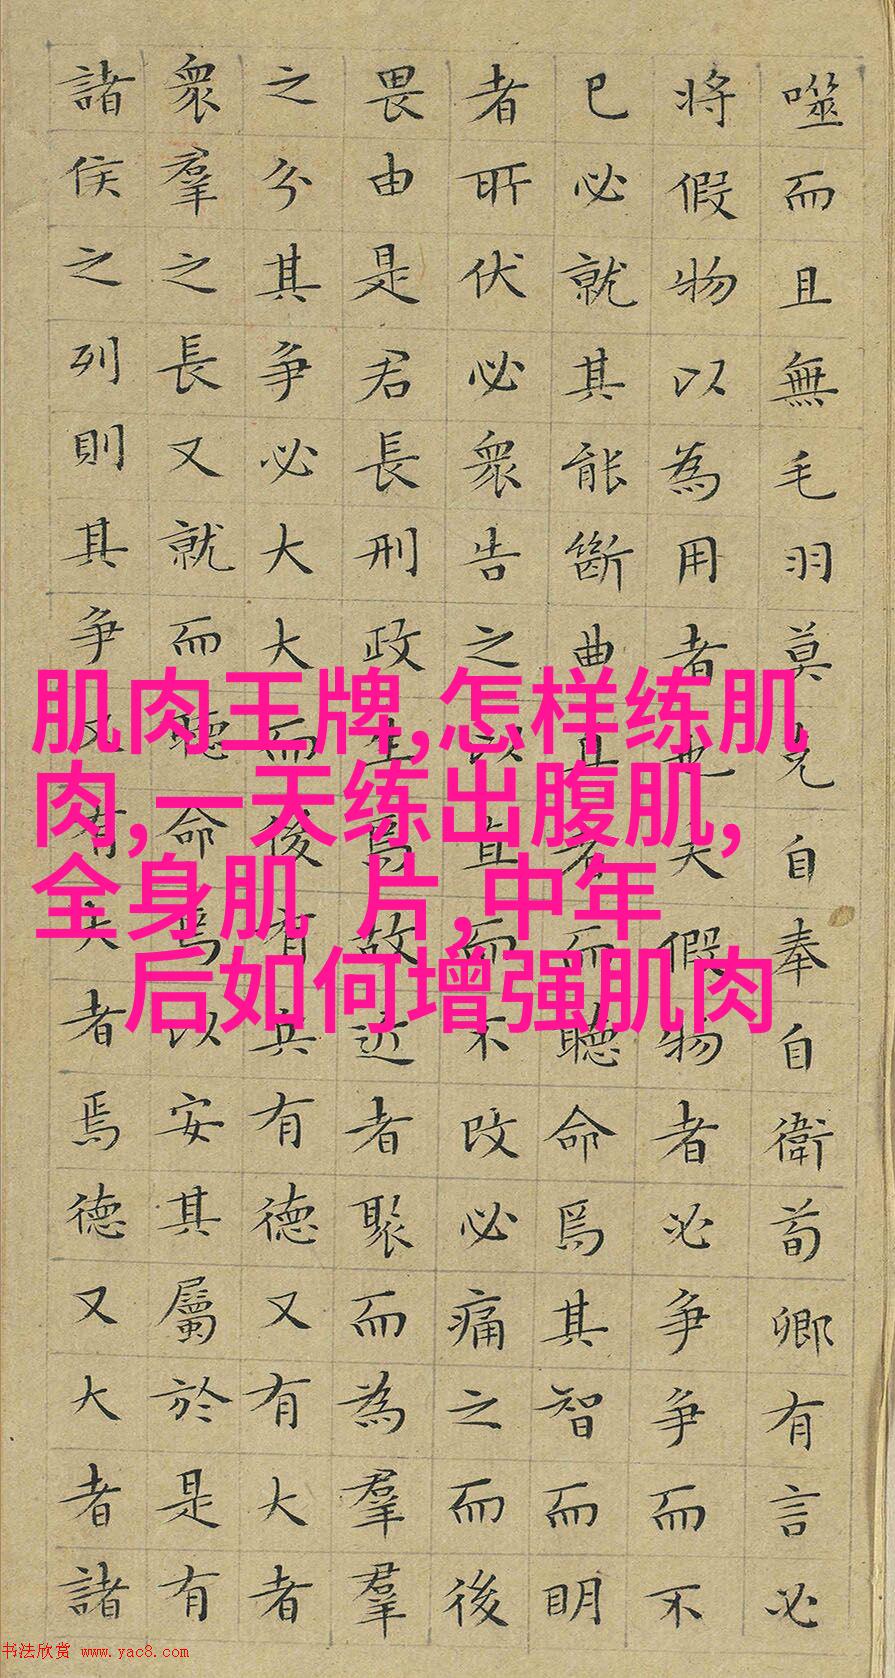 噬而且無毛羽莫克自奉自衛荀卿有言必
将假物以為用者也夫假物者必争争而不
已必就其能斷曲直者而聽命焉其智而明
者所伏必衆告之以直而不改必痛之而後
畏由是君長刑政生焉故近者聚而為羣羣
之分其争必大大而後有兵有德又有大者
衆羣之長又就而聽命焉以安其屬於是有
諸侯之列則其争又有大者焉德又大者諸
肌肉王牌,怎样练肌
肉,一天练出腹肌,
全身肌 片,中年
后如何增强肌肉
书法欣赏 www.yac8.com